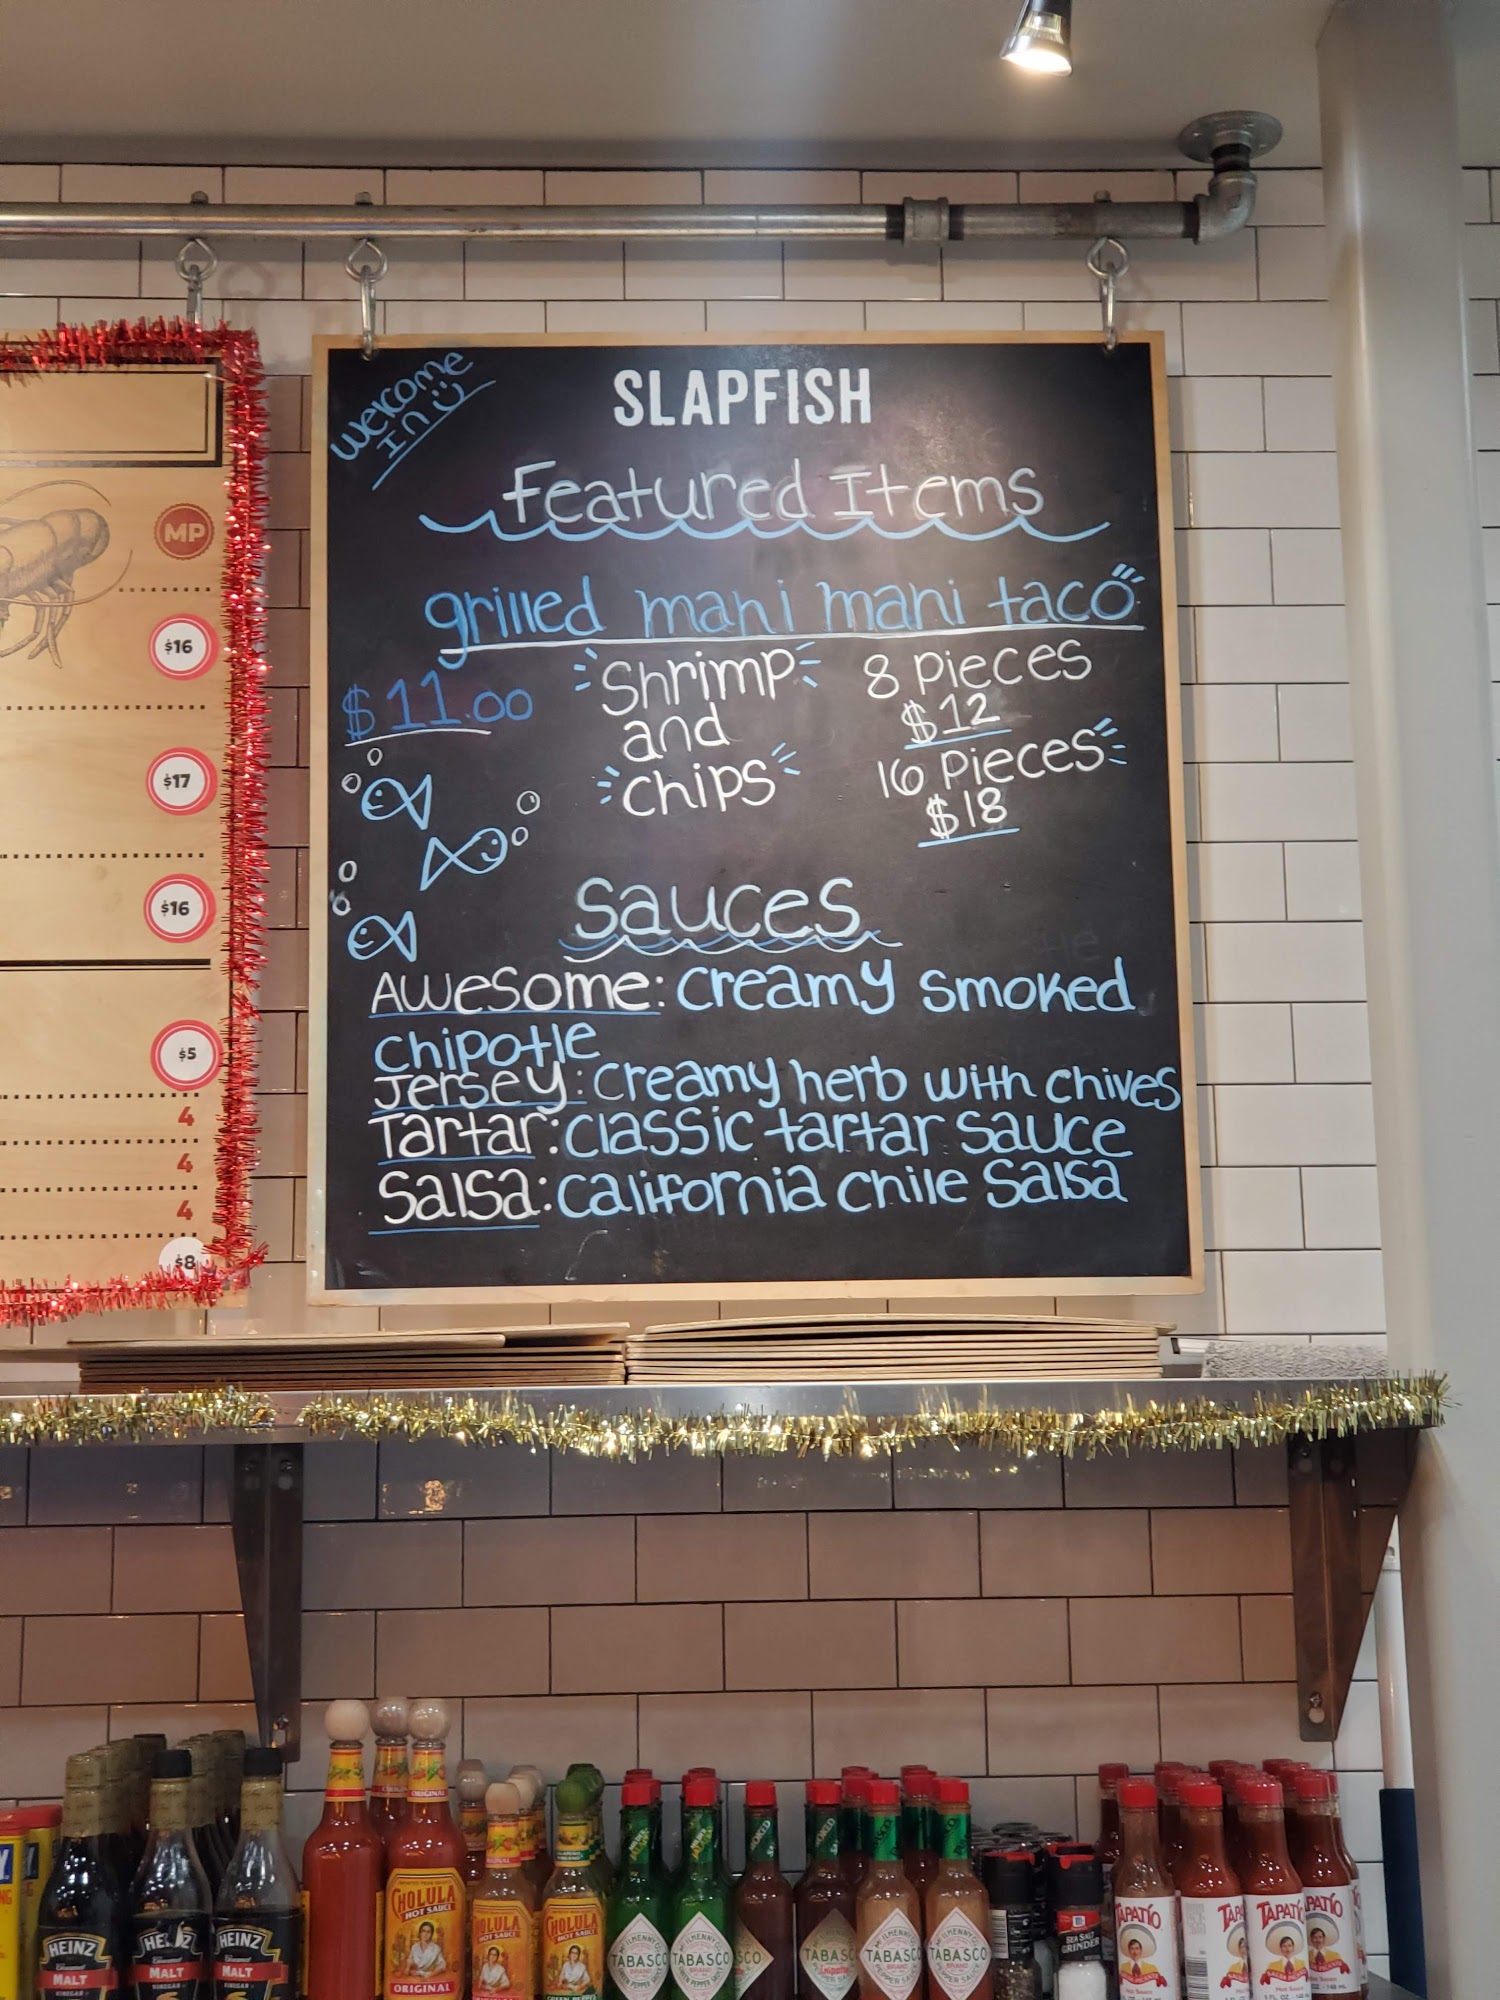 Welcome
In
SLAPFISH
Featured Items
grilled mahi mahi taco
$11.00
Shrimp
and
chips
8 Pieces
$12
16 Pieces
$18
Sauces
Awesome: creamy smoked
chipotle
Jersey: creamy herb with chives
Tartar: classic tartar sauce
Salsa: california chile salsa
MP
$16
$17
$16
$5
4
4
4
$8
HEINZ
MALT
VINEGAR
HEINZ
MALT
VINEGAR
HEINZ
MALT
VINEGAR
ORIGINAL
CHOLULA
HOT SAUCE
ORIGINAL
CHOLULA
HOT SAUCE
CHOLULA
HOT SAUCE
GREEN PEPPER
TABASCO
BRAND
TABASCO
BRAND
SMOKED
TABASCO
Chipotle
TABASCO
BRAND
McILHENNY CO
TABASCO
BRAND
SEA SALT
GRINDER
TAPATIO
TAPATIO
TAPATIO